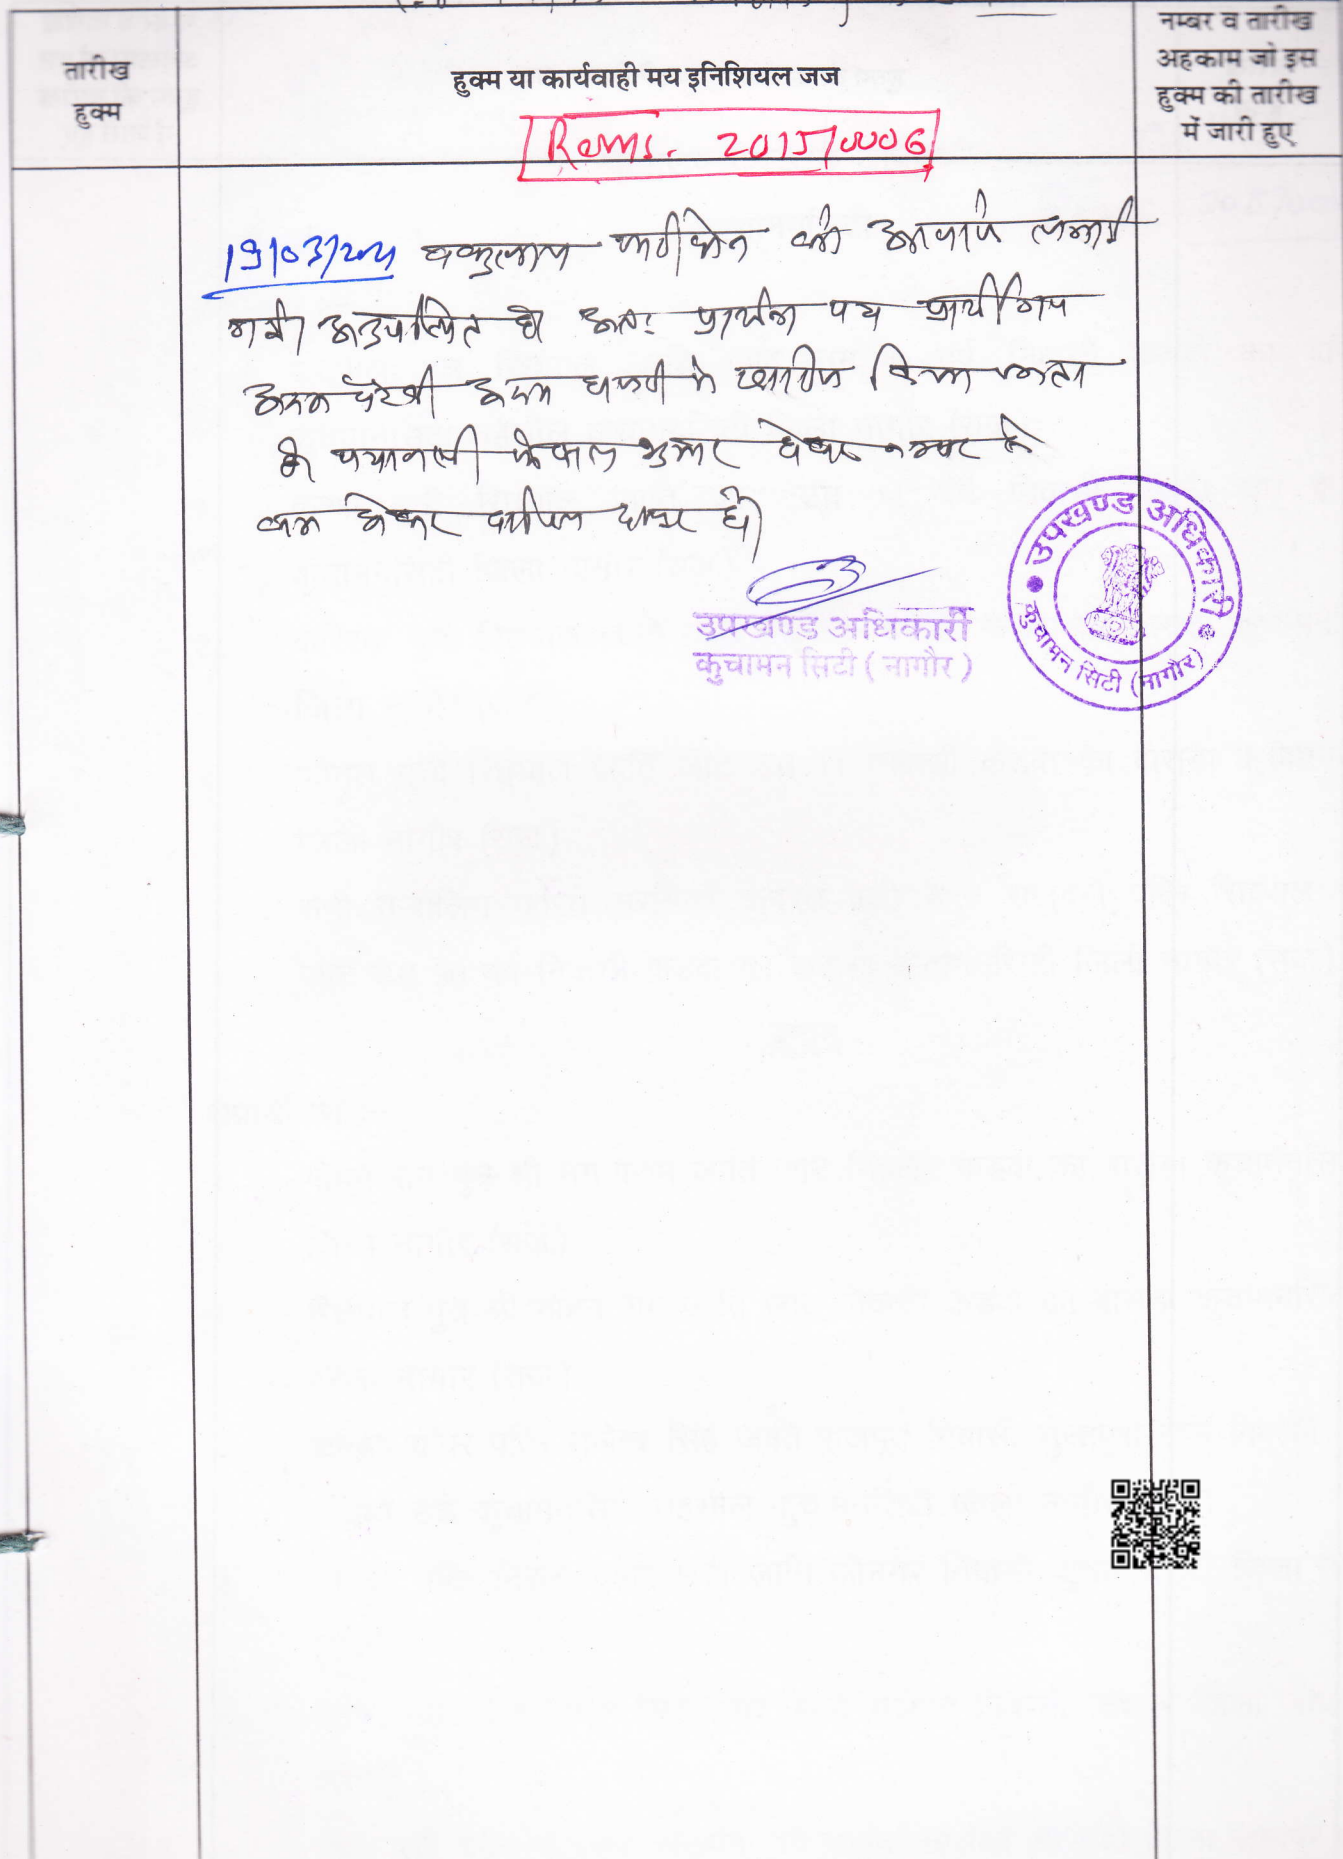 तारीख
हुक्म
हुक्म या कार्यवाही मय इनिशियल जज
नम्बर व तारीख
अहकाम जो इस
हुक्म की तारीख
में जारी हुए
Rcms. 2015/0006
19/03/2021 वकुलाय फरीकेन को आवाज लगाई
गयी अनुपस्थित है अतः प्रार्थना पत्र प्रार्थीगण
अदम पैरवी अदम हाजरी में खारिज किया जाता
है पत्रावली फैसल शुमार होकर नम्बर से
कम होकर दाखिल दफ्तर हो
उपखण्ड अधिकारी
कुचामन सिटी (नागौर)
उपखण्ड अधिकारी
कुचामन सिटी (नागौर)